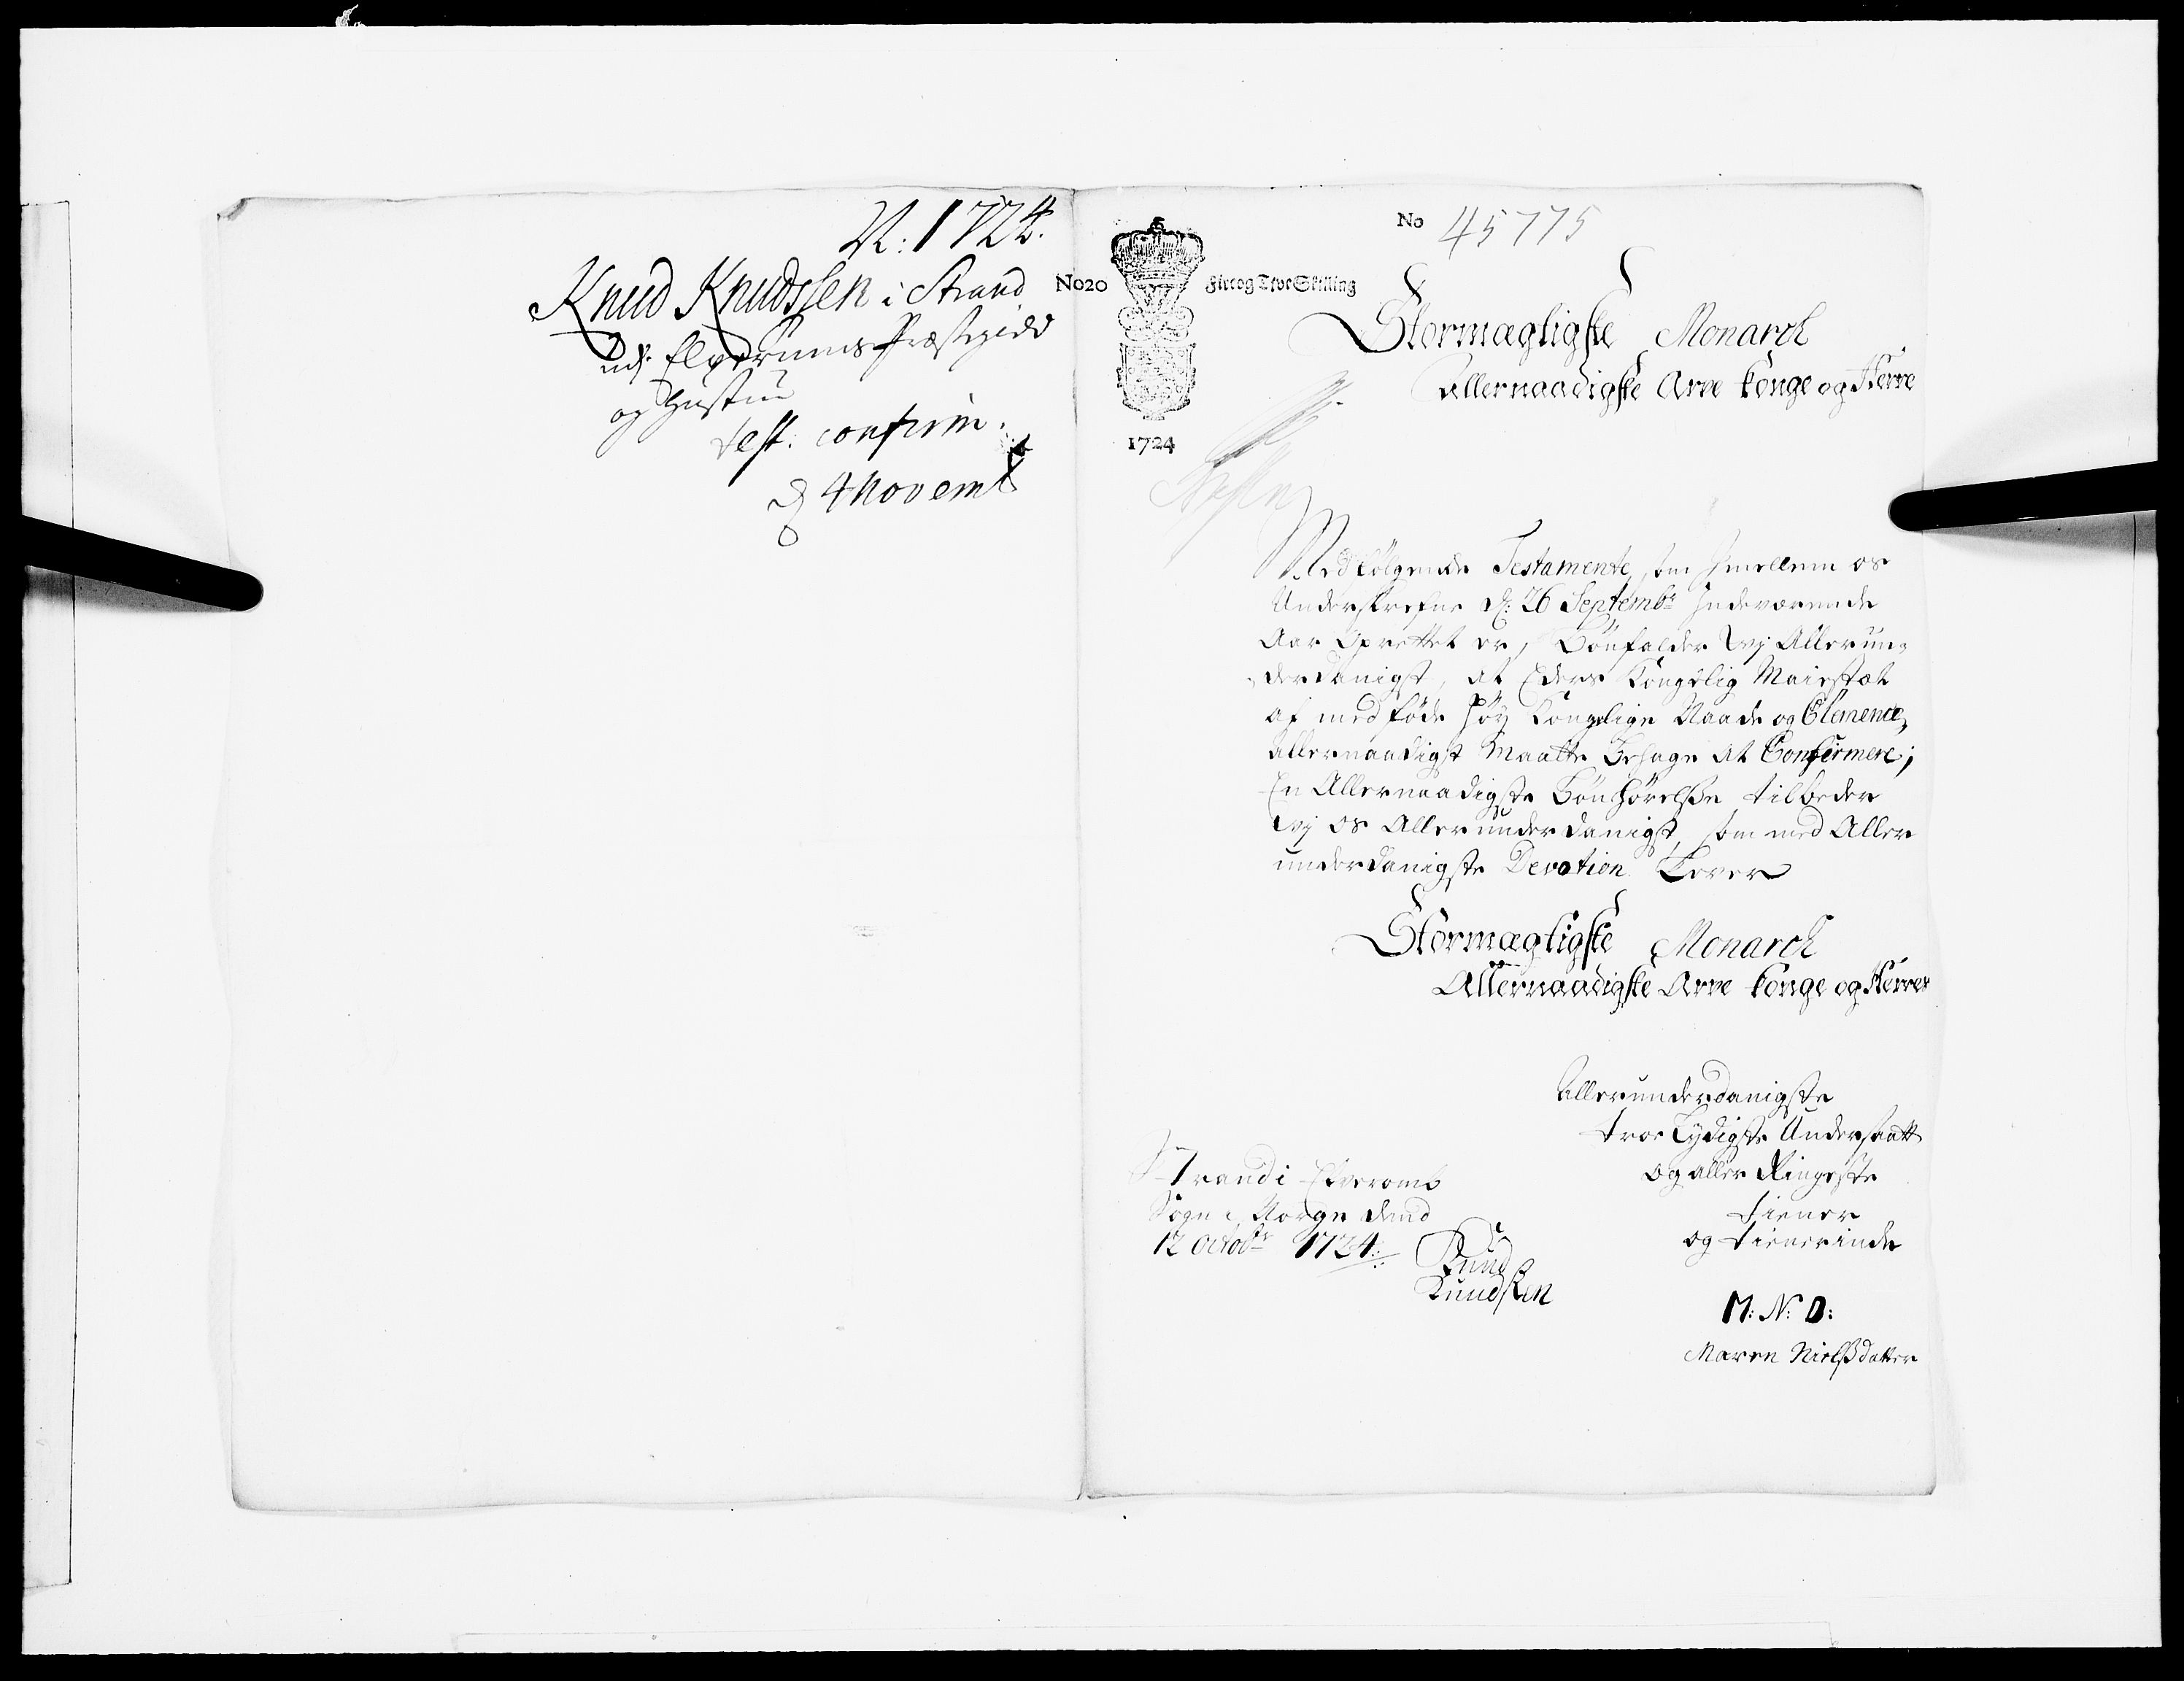 N: 1724.
Knud Knudssen i Strand
udj Elverums Præstegield
og Hustru
test: confirm.
d 4 Novemb
No 45775
No20 Fire og Tyve Skilling
1724
Stormægtigste Monarch
Allernaadigste Arve Konge og Herre
Medfölgende Testamente, som Imellem os
Underskrefne d: 26 Septembr Indeværende
Aar Oprettet er, Bönfalder wj Allerun-
derdanigst, at Eders Kongelig Maiestæt
af medföde höy Kongelige Naade og Clemence,
allernaadigst Maatte Behage at Confirmere;
En Allernaadigste Bönhörelsse tilbeder
wj os Allerunderdanigst, som med Aller
underdanigste Devotion Lever
Stormægtigste Monarch
Allernaadigste Arve Konge og Herres
Allerunderdanigste
troe Lydigste Undersaatt
og aller Ringeste
tiener
og tienerinde
Strand i Elverombs
Sogn i Norge dend
12 Octobr 1724:
Knud
Knudsen
M: N: D:
Maren Nielsdatter